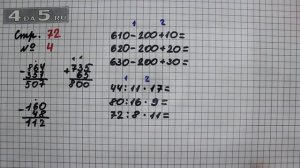 4DA5.RU
Стр. 72
№ 4
864
-357
507
735
+65
800
160
-48
112
1 2
610-200+10=
620-200+20=
630-200+30=
1 2
44:11·17=
80:16·9=
72:8·11=